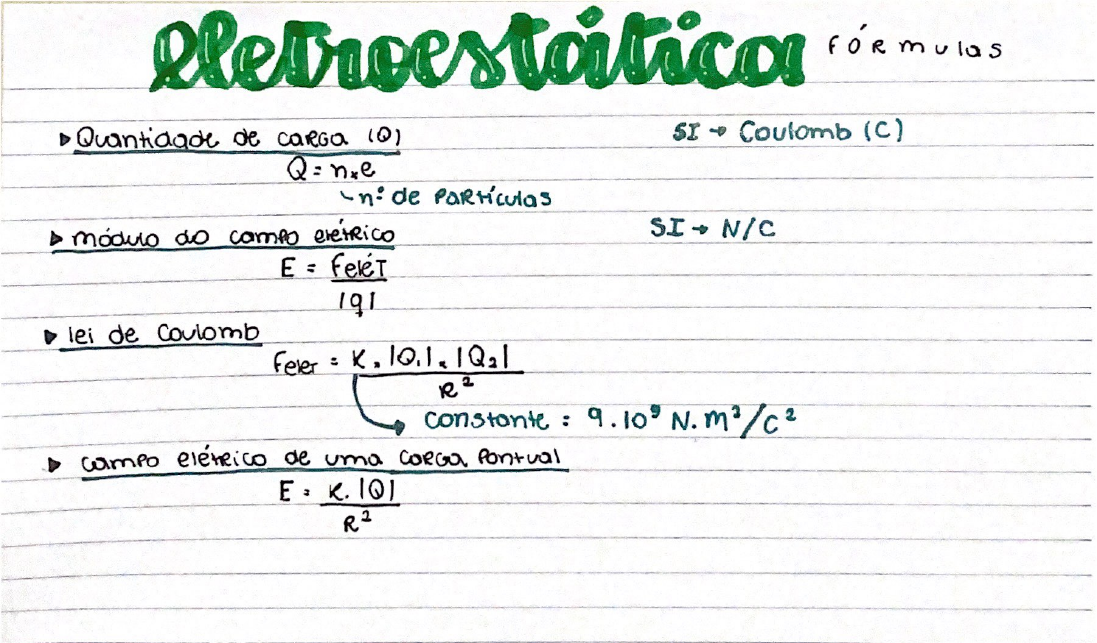 eletroestática FÓRMULAS
▸ Quantidade de carga (Q) SI → Coulomb (C)
Q = n.e
nº de partículas
▸ módulo do campo elétrico SI → N/C
E = Felét
|q|
▸ lei de Coulomb
Feler = K.|Q1|.|Q2|
R²
constante = 9.10⁹ N.m²/C²
▸ campo elétrico de uma carga pontual
E = K.|Q|
R²